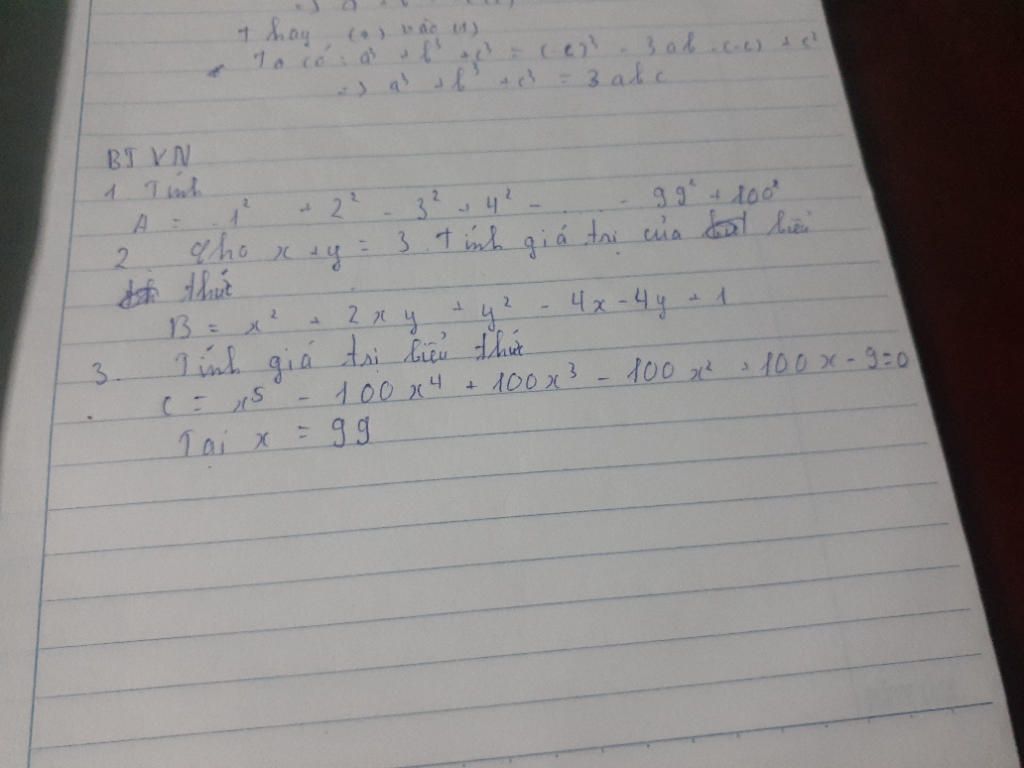 Thay (*) vào (1)
Ta có: a³ + b³ + c³ = (-c)³ - 3ab.(-c) + c³
=> a³ + b³ + c³ = 3abc
BTVN
1 Tính
A = -1² + 2² - 3² + 4² - ... - 99² + 100²
2 Cho x+y = 3. Tính giá trị của biểu
thức
B = x² + 2xy + y² - 4x - 4y + 1
3. Tính giá trị biểu thức
C = x⁵ - 100x⁴ + 100x³ - 100x² + 100x - 9=0
Tại x = 99